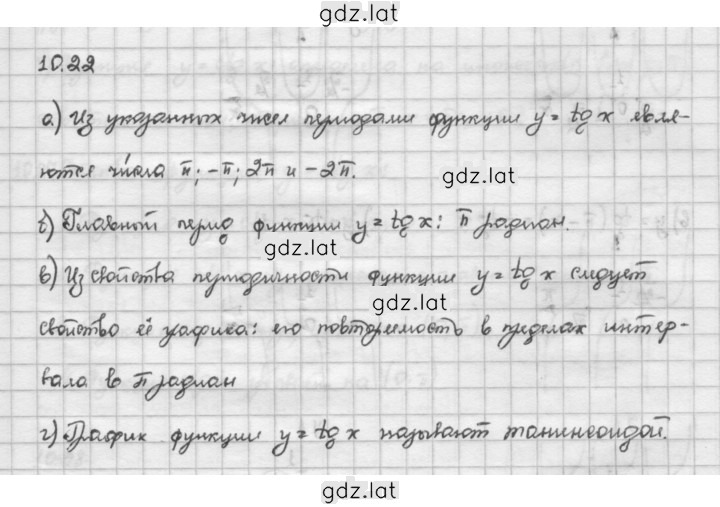 gdz.lat
10.22
а) Из указанных чисел периодами функции y = tg x явля-
gdz.lat
ются числа π; -π; 2π и -2π.
gdz.lat
б) Главный период функции y = tg x: π радиан.
gdz.lat
в) Из свойства периодичности функции y = tg x следует
gdz.lat
свойство её графика: его повторяемость в пределах интер-
вала в π радиан
г) График функции y = tg x называют тангенсоидой.
gdz.lat